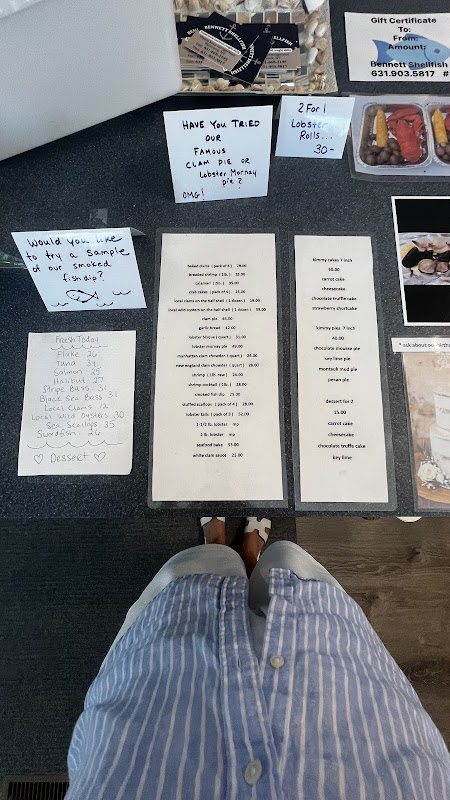 BENNETT SHELLFISH
Gift Certificate
To:
From:
Amount:
Bennett Shellfish
631.903.5817 #
HAVE YOU TRIED
OUR
FAMOUS
CLAM PIE OR
Lobster Mornay
pie?
OMG!
2 For 1
Lobster
Rolls...
30-
Would you like
to try a Sample
of our smoked
fish dip?
Fresh Today
Fluke 26
Tuna 34
Salmon 28
Halibut 27
Stripe Bass 31
Black Sea Bass 31
Local Clams 12
Local Wild Oysters 30
Sea Scallops 35
Swordfish 26
Dessert
baked clams ( pack of 6 ) 28.00
breaded shrimp ( 1lb. ) 32.00
calamari ( 1lb. ) 35.00
crab cakes ( pack of 4 ) 25.00
local clams on the half shell ( 1 dozen ) 19.00
local wild oysters on the half shell ( 1 dozen ) 39.00
clam pie 45.00
garlic bread 12.00
lobster bisque ( quart ) 31.00
lobster mornay pie 49.00
manhattan clam chowder ( quart ) 26.00
new england clam chowder ( quart ) 28.00
shrimp ( 1lb. raw ) 24.00
shrimp cocktail ( 1lb. ) 28.00
smoked fish dip 25.00
stuffed scallops ( pack of 4 ) 28.00
lobster tails ( pack of 3 ) 52.00
1-1/2 lb. lobster mp
2 lb. lobster mp
seafood bake 55.00
white clam sauce 25.00
kimmy cakes 7 inch
50.00
carrot cake
cheesecake
chocolate truffle cake
strawberry shortcake
kimmy pies 7 inch
40.00
chocolate mousse pie
key lime pie
montauk mud pie
pecan pie
dessert for 2
15.00
carrot cake
cheesecake
chocolate truffle cake
key lime
* ask about our